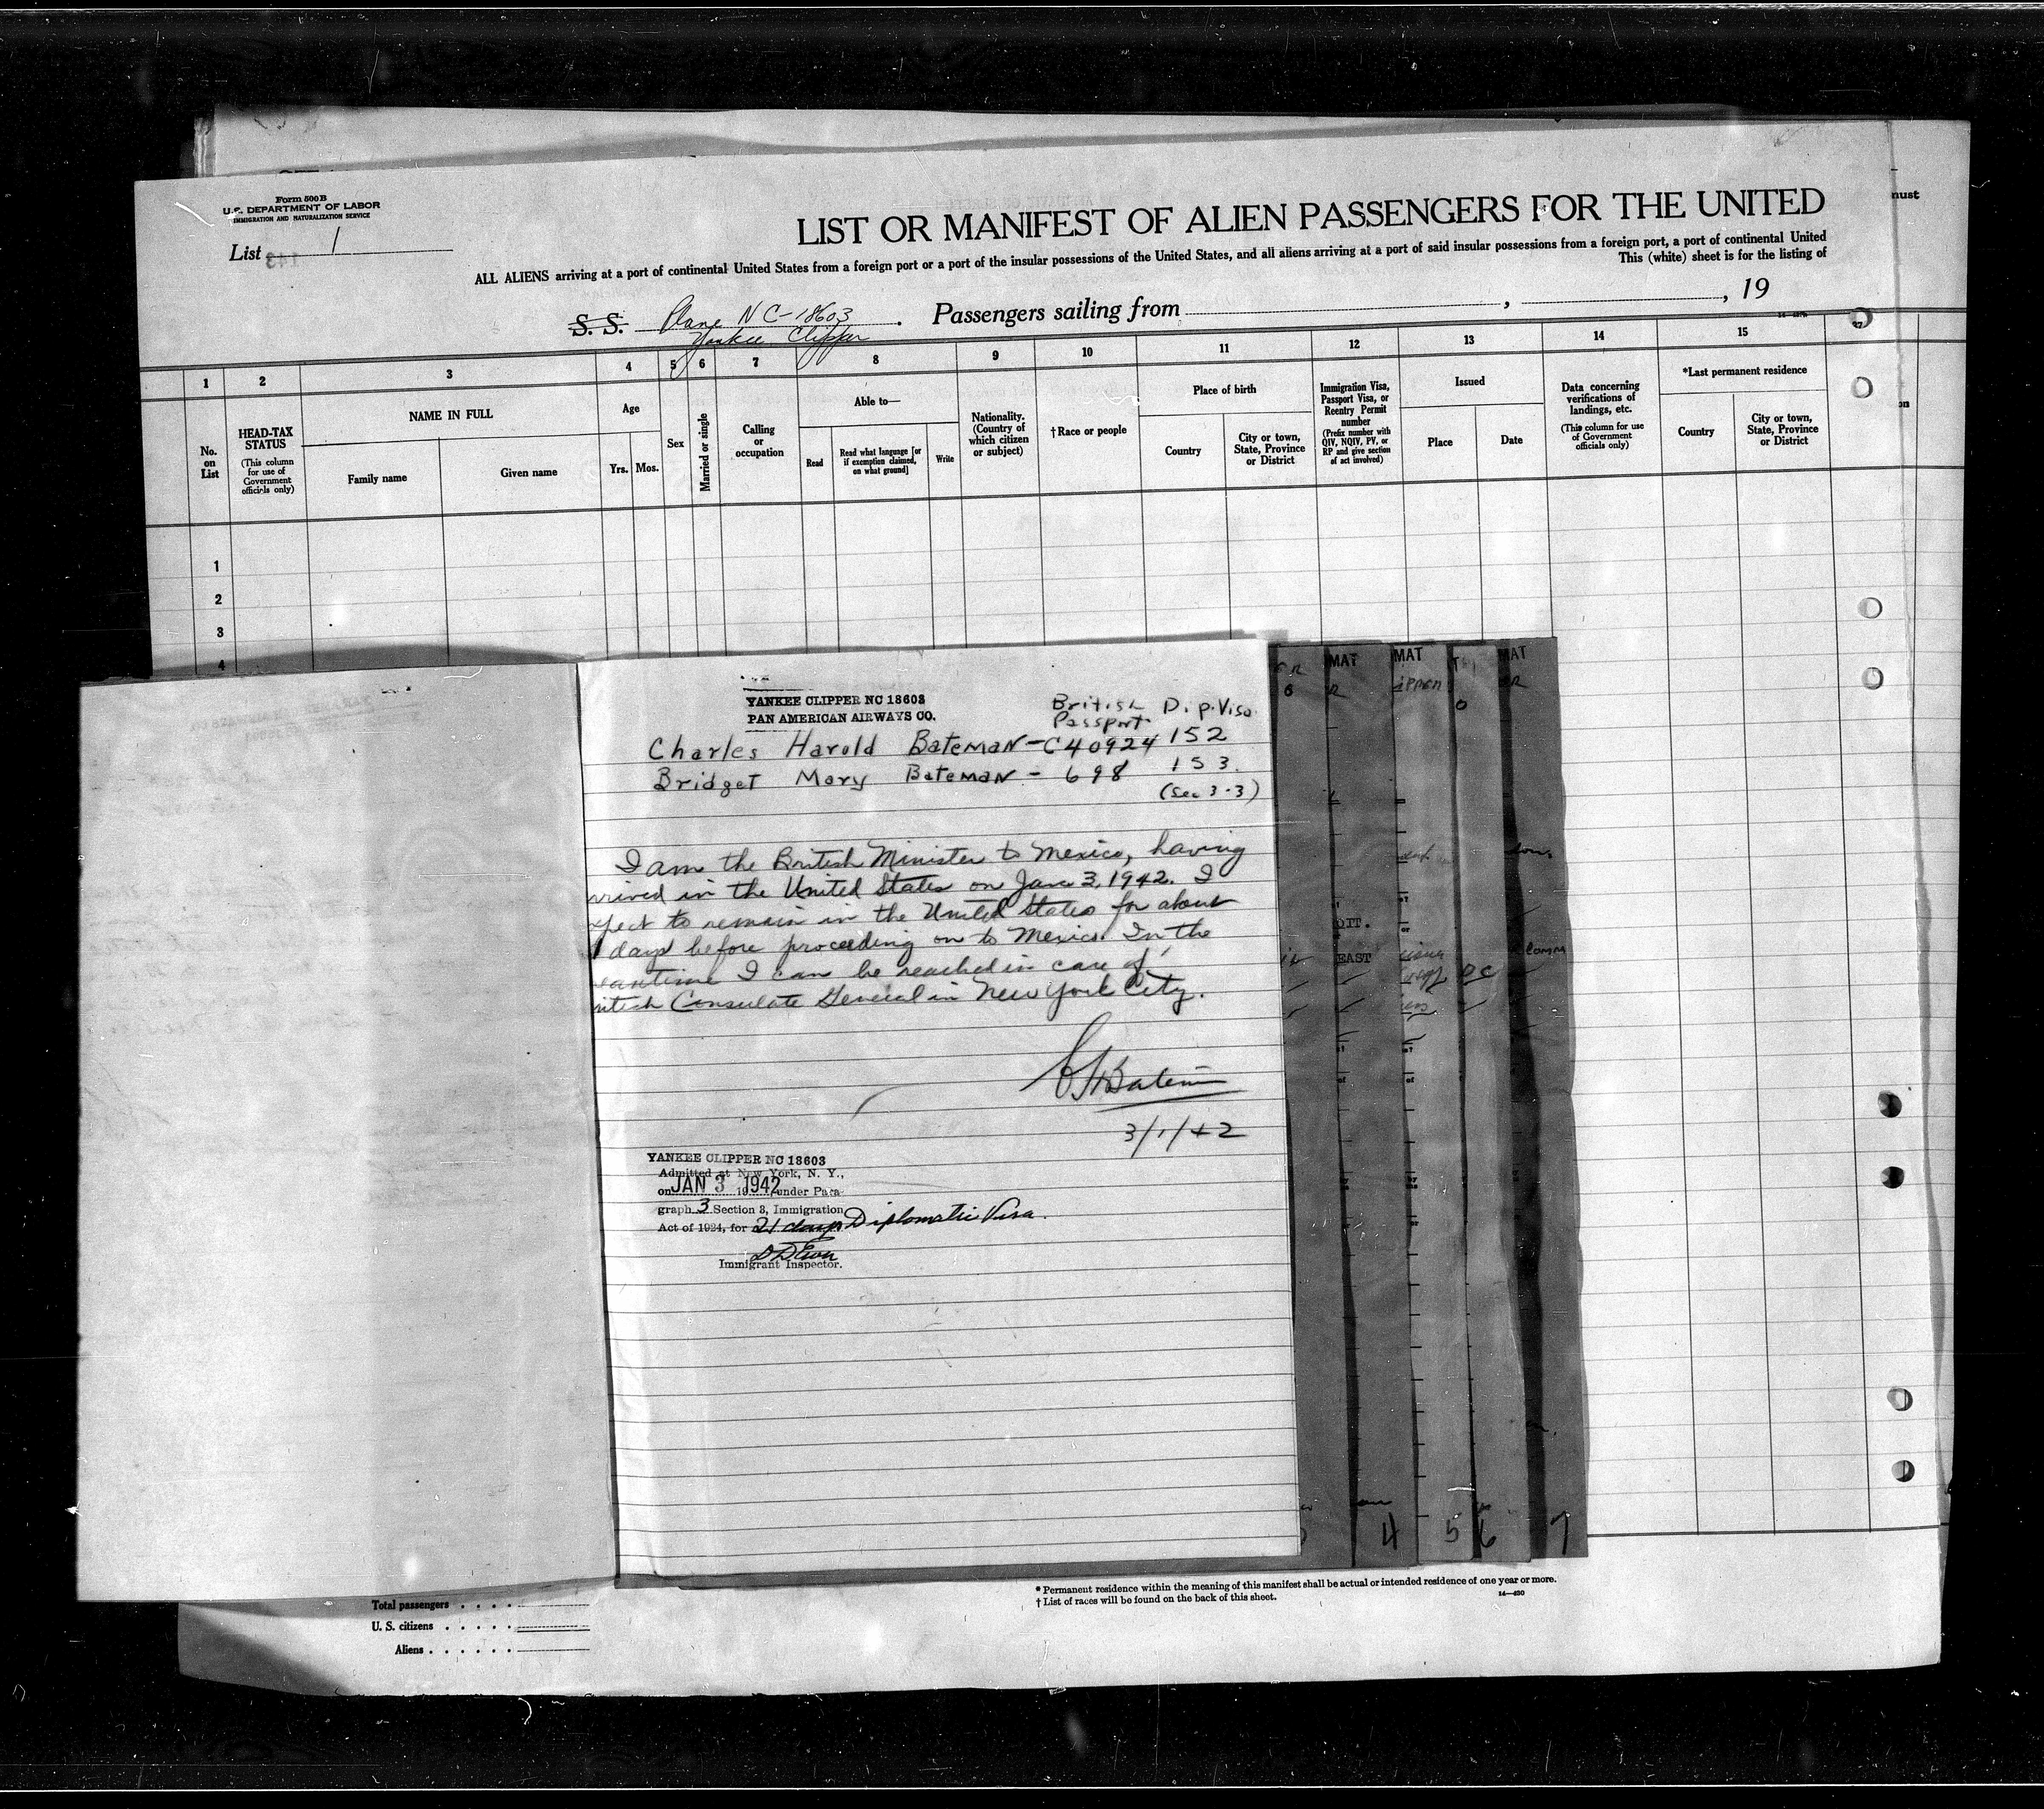 Form 500 B
U.S. DEPARTMENT OF LABOR
IMMIGRATION AND NATURALIZATION SERVICE
List 1
LIST OR MANIFEST OF ALIEN PASSENGERS FOR THE UNITED
ALL ALIENS arriving at a port of continental United States from a foreign port or a port of the insular possessions of the United States, and all aliens arriving at a port of said insular possessions from a foreign port, a port of continental United
This (white) sheet is for the listing of
S. S. Plane NC-18603 . Passengers sailing from , , 19
Yankee Clipper
1 2 3 4 5 6 7 8 9 10 11 12 13 14 15
No. on List
HEAD-TAX STATUS
(This column for use of Government officials only)
NAME IN FULL
Family name
Given name
Age
Yrs. Mos.
Sex
Married or single
Calling or occupation
Able to—
Read
Read what language [or if exemption claimed, on what ground]
Write
Nationality. (Country of which citizen or subject)
†Race or people
Place of birth
Country
City or town, State, Province or District
Immigration Visa, Passport Visa, or Reentry Permit number
(Prefix number with QIV, NQIV, PV, or RP and give section of act involved)
Issued
Place
Date
Data concerning verifications of landings, etc.
(This column for use of Government officials only)
*Last permanent residence
Country
City or town, State, Province or District
1
2
3
4
YANKEE CLIPPER NC 18603
PAN AMERICAN AIRWAYS CO.
British Passport Dip. Visa
Charles Harold Bateman - C40924 152
Bridget Mary Bateman - 698 153.
(Sec 3-3)
I am the British Minister to Mexico, having
rrived in the United States on Jan 3, 1942. I
xpect to remain in the United States for about
days before proceeding on to Mexico. In the
eantime I can be reached in care of
ritish Consulate General in New York City.
CHBateman
3/1/42
YANKEE CLIPPER NC 18603
Admitted at New York, N. Y.,
on JAN 3 1942 under Para-
graph 3 Section 3, Immigration
Act of 1924, for 21 days Diplomatic Visa.
Immigrant Inspector.
MAT MAT MAT
EAST
4 5 6 7
Total passengers
U. S. citizens
Aliens
* Permanent residence within the meaning of this manifest shall be actual or intended residence of one year or more.
† List of races will be found on the back of this sheet.
14—430